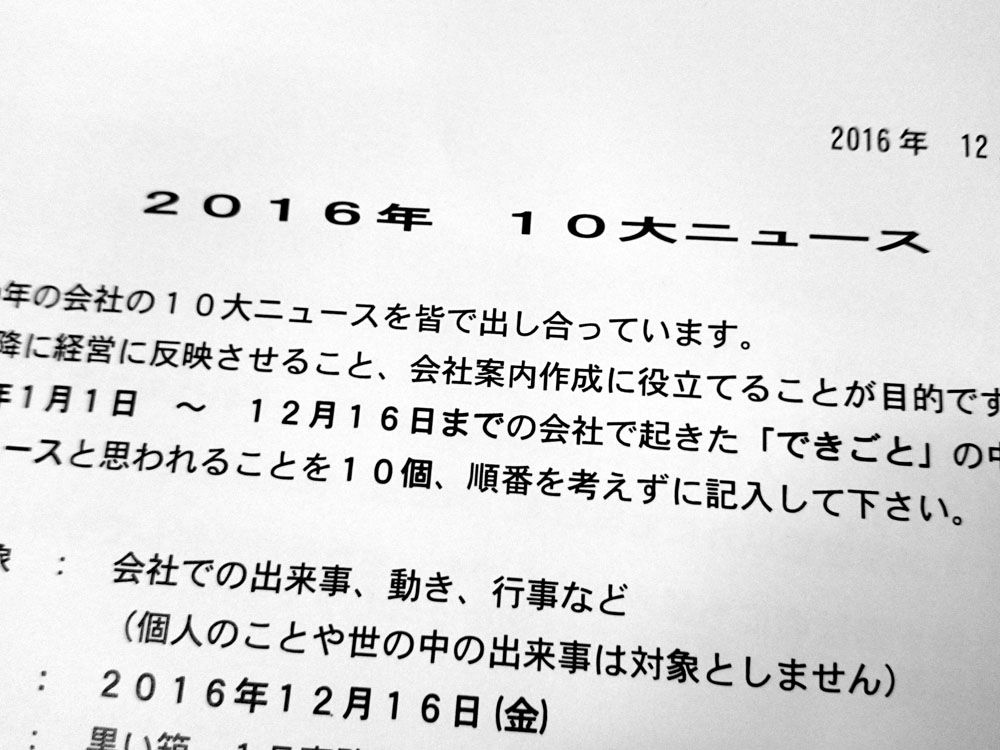 2016年 12
２０１６年 １０大ニュース
年の会社の１０大ニュースを皆で出し合っています。
降に経営に反映させること、会社案内作成に役立てることが目的です
年１月１日 ～ １２月１６日までの会社で起きた「できごと」の中
ースと思われることを１０個、順番を考えずに記入して下さい。
象 ： 会社での出来事、動き、行事など
（個人のことや世の中の出来事は対象としません）
： ２０１６年１２月１６日(金)
： 黒い箱